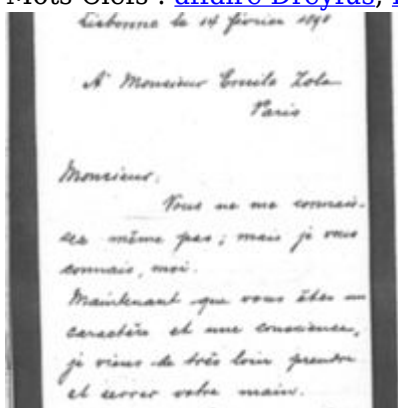 Mots Clefs : affaire Dreyfus,
Lisbonne le 14 février 1898
A Monsieur Emile Zola
Paris
Monsieur,
Vous ne me connais-
sez même pas ; mais je vous
connais, moi.
Maintenant que vous êtes un
caractère et une conscience,
je viens de très loin prendre
et serrer votre main.